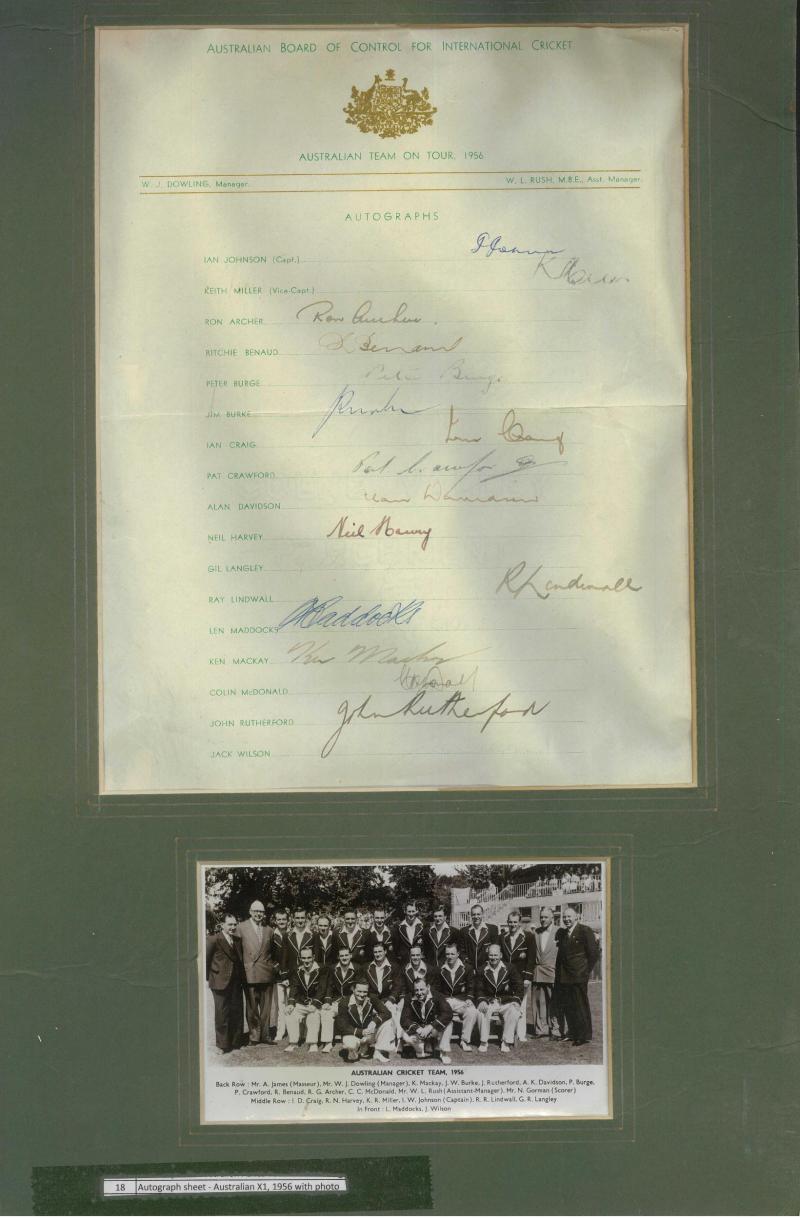 AUSTRALIAN BOARD OF CONTROL FOR INTERNATIONAL CRICKET
AUSTRALIAN TEAM ON TOUR, 1956
W. J. DOWLING, Manager. W. L. RUSH, M.B.E., Asst. Manager.
AUTOGRAPHS
IAN JOHNSON (Capt.)
KEITH MILLER (Vice-Capt.)
RON ARCHER Ron Archer.
RITCHIE BENAUD R Benaud
PETER BURGE Peter Burge
JIM BURKE
IAN CRAIG Ian Craig
PAT CRAWFORD Pat Crawford
ALAN DAVIDSON Alan Davidson
NEIL HARVEY Neil Harvey
GIL LANGLEY
RAY LINDWALL R Lindwall
LEN MADDOCKS Maddocks
KEN MACKAY Ken Mackay
COLIN McDONALD
JOHN RUTHERFORD John Rutherford
JACK WILSON
AUSTRALIAN CRICKET TEAM, 1956
Back Row : Mr. A. James (Masseur), Mr. W. J. Dowling (Manager), K. Mackay, J. W. Burke, J. Rutherford, A. K. Davidson, P. Burge,
P. Crawford, R. Benaud, R. G. Archer, C. C. McDonald, Mr. W. L. Rush (Assistant-Manager), Mr. N. Gorman (Scorer)
Middle Row : I. D. Craig, R. N. Harvey, K. R. Miller, I. W. Johnson (Captain), R. R. Lindwall, G. R. Langley
In Front : L. Maddocks, J. Wilson
18 Autograph sheet - Australian X1, 1956 with photo